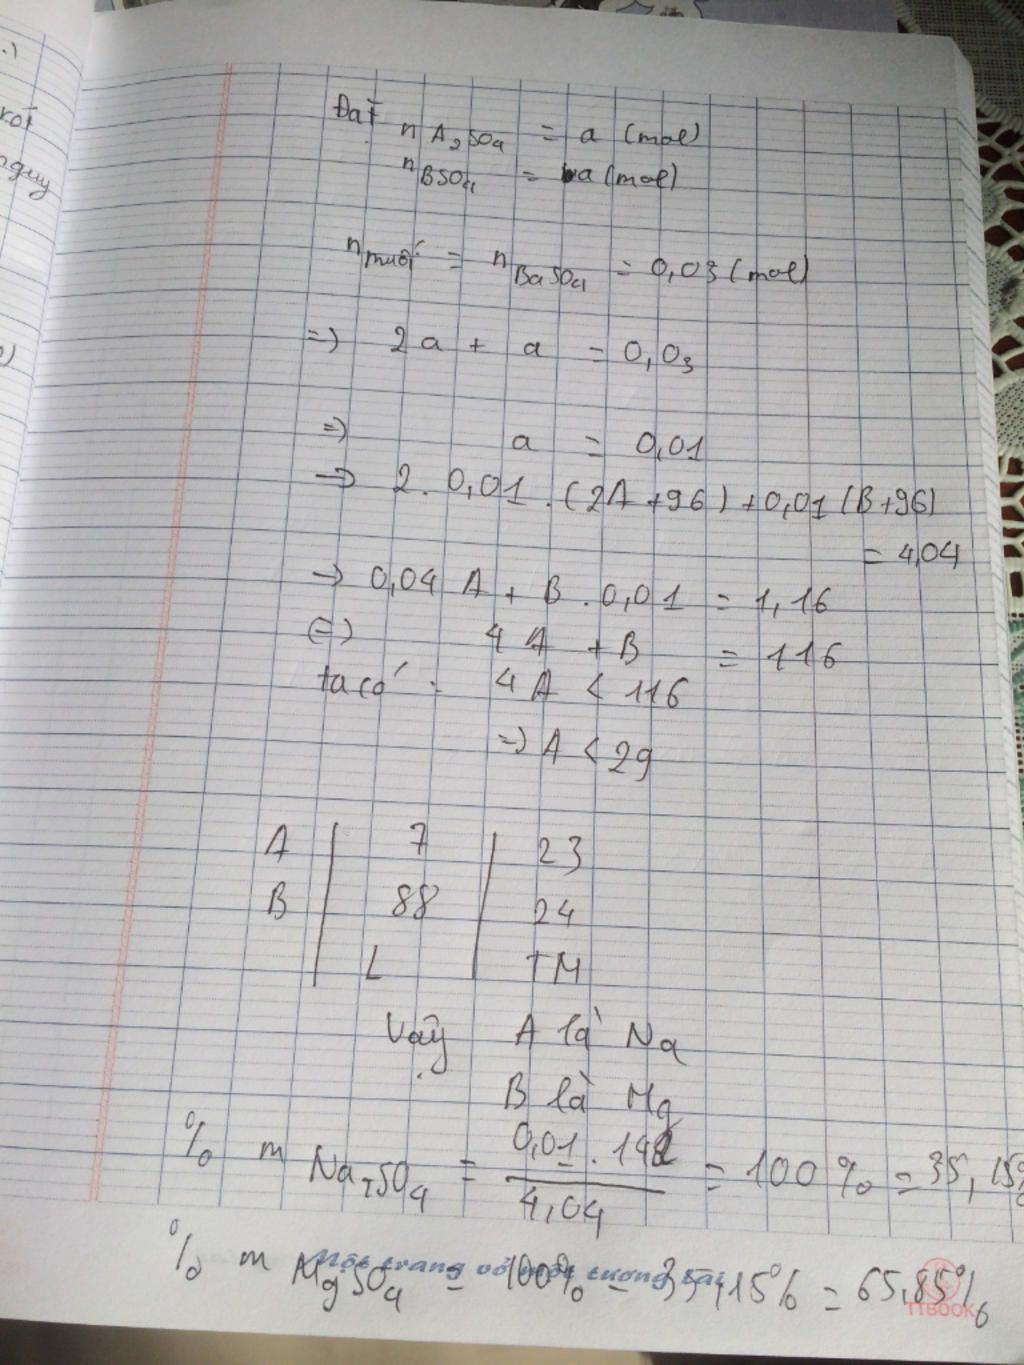 Đặt n A₂SO₄ = a (mol)
n BSO₄ = a (mol)
n muối = n BaSO₄ = 0,03 (mol)
=> 2a + a = 0,03
=> a = 0,01
→ 2. 0,01 . (2A + 96) + 0,01 (B + 96)
= 4,04
→ 0,04 A + B . 0,01 = 1,16
(=) 4A + B = 116
ta có : 4A < 116
=> A < 29
A | 7 | 23
B | 88 | 24
L TM
Vậy A là Na
B là Mg
% m Na₂SO₄ = 0,01 . 142 / 4,04 = 100 % = 35,15%
% m MgSO₄ = 100% - 35,15% = 65,85%
Một trang vở một tương lai
TTBOOK